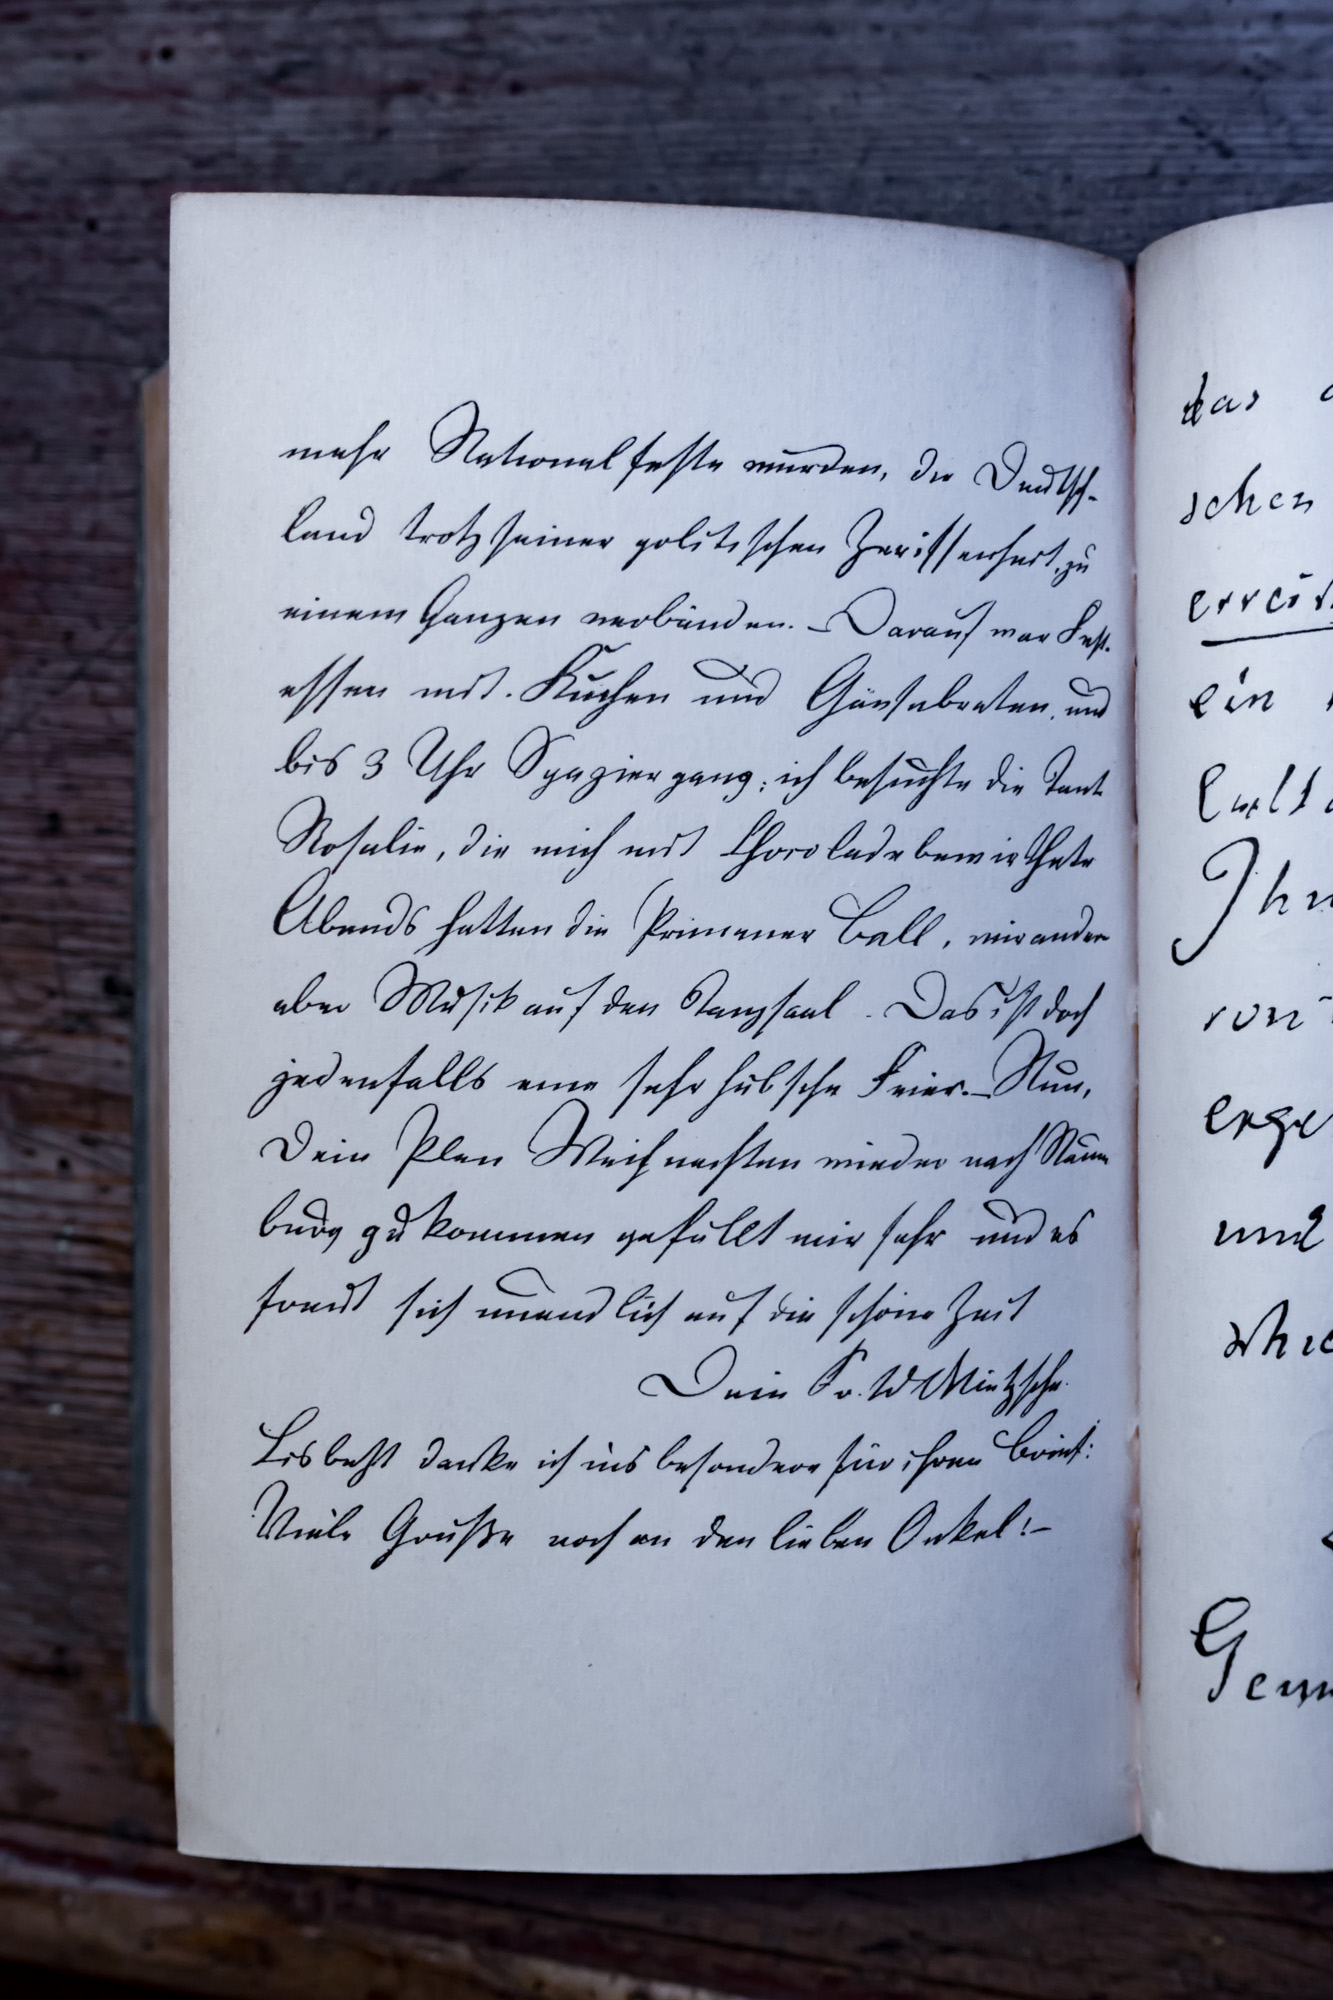 mehr Nationalfeste wurden, die Deutsch-
land trotz seiner politischen Zerissenheit, zu
einem Ganzen verbänden. – Darauf war Fest-
essen mit Kuchen und Gänsebraten, und
bis 3 Uhr Spaziergang; ich besuchte die Tante
Rosalie, die mich mit Chocolade bewirthete
Abends hatten die Primaner Ball, wir andern
aber Musik auf den Tanzsaal. Das ist doch
jedenfalls eine sehr hübsche Feier. – Nun,
Dein Plan Weihnachten wieder nach Naum
burg zu kommen gefällt mir sehr und es
freut sich unendlich auf die schöne Zeit
Dein Fr. W Nietzsche.
Lisbeht danke ich ins besondere für ihren Brief:
Viele Grüße noch an den lieben Onkel! –
das
schen
ein
und